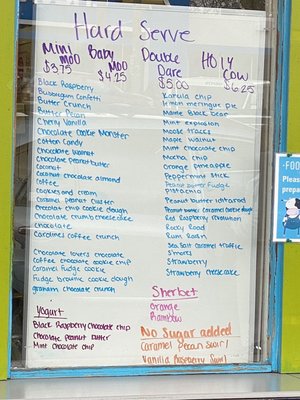 Hard Serve
Mini Moo $3.75
Baby Moo $4.25
Double Dare $5.00
Holy Cow $6.25
Black Raspberry
Bubblegum Confetti
Butter Crunch
Butter Pecan
Cherry Vanilla
Chocolate Cookie Monster
Cotton Candy
Chocolate Walnut
Chocolate Peanut butter
Coconut
Coconut chocolate almond
Coffee
Cookies and cream
Caramel Peanut Cluster
Chocolate chip cookie dough
Chocolate crumb cheesecake
chocolate
Carolines coffee crunch
Chocolate lovers chocolate
Coffee chocolate cookie chip
Caramel Fudge cookie
Fudge brownie cookie dough
graham chocolate crunch
Vanilla chip
Lemon meringue pie
Maine Black bear
Mint explosion
Moose tracks
Maple walnut
Mint chocolate chip
Mocha chip
Orange Pineapple
Peppermint stick
Peanut butter Fudge
pistachio
Peanut butter
Peanut butter caramel cookie dough
Red Raspberry
Rocky Road
Rum Raisin
Sea Salt Caramel truffle
S'mores
Strawberry
Strawberry cheesecake
Sherbet
Orange
Rainbow
Yogurt
Black Raspberry chocolate chip
Chocolate peanut butter
Mint chocolate chip
No Sugar added
Caramel Pecan Swirl
Vanilla Raspberry Swirl
-FOO
Please